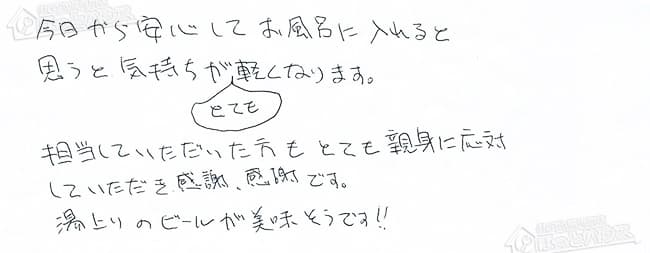 今日から安心してお風呂に入れると
思うと気持ちが軽くなります。
とても
担当していただいた方もとても親身に応対
していただき感謝、感謝です。
湯上りのビールが美味そうです!!